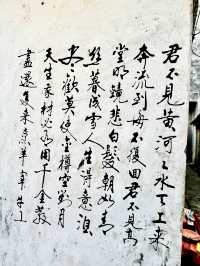 君不見黃河之水天上來
奔流到海不復回君不見高
堂明鏡悲白髮朝如青
丝暮成雪人生得意須
尽歡莫使金樽空對月
天生我材必有用千金散
盡還復来烹羊宰牛且